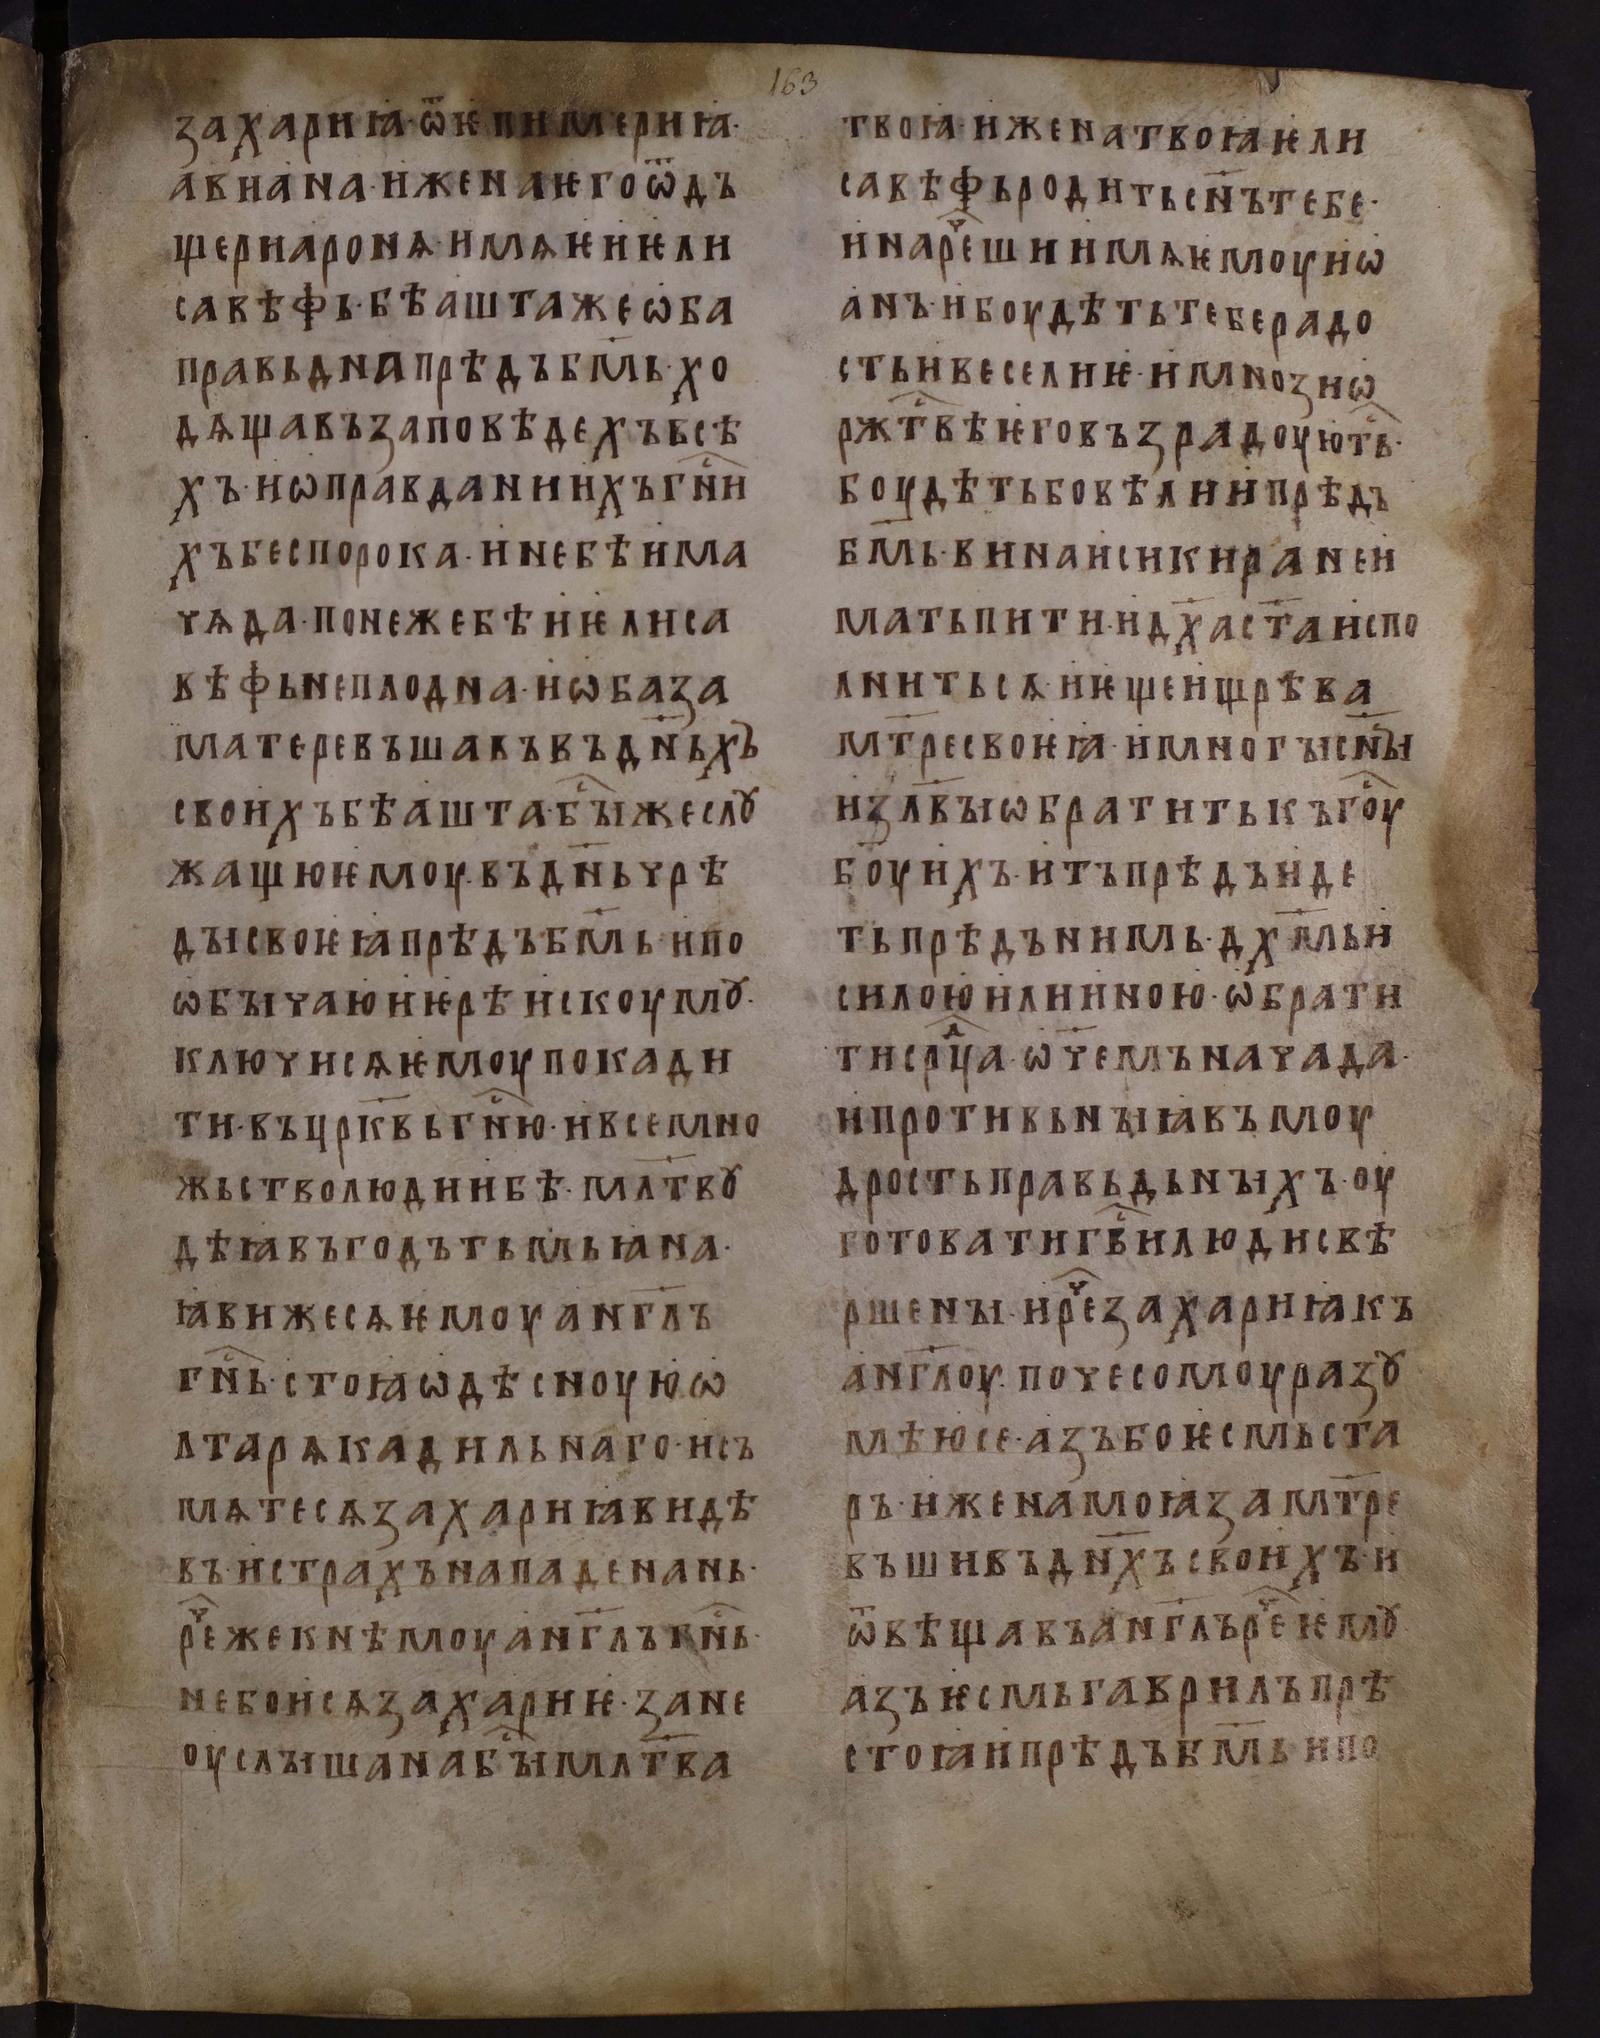 163
захариꙗ·ѿѥпимериꙗ·
авиана·иженаѥгоѿдъ
щериаронѧ·имѧѥиѥли
савѣфь·бѣаштажеѡба
правьднапрѣдъб҃мь·хо
дѧщавъзаповѣдехъвсѣ
хъ·иѡправданиихъгн҇и
хъбеспорока·инебѣима
чѧда·понежебѣиѥлиса
вѣфьнеплодна·иѡбаза
матеревъшавъвъдн҃ьхъ
своихъбѣашта·бы҇жеслꙋ
жащюѥмоу·въдн҃ьчрѣ
дꙑсвоѥꙗпрѣдъб҃мь·ипо
ѡбꙑчаюиѥрѣискоумꙋ·
ключисѧѥмоупокади
ти·въцрк҃вьгн҇ю·ивсемно
жьстволюдиибѣ·млт҃вꙋ
дѣꙗвъгодътьмьꙗна·
ꙗвижесѧѥмоуанг҃лъ
гн҇ь·стоꙗѡдѣсноуюѡ
лтарѧкадильнаго·исъ
мѧтесѧзахариꙗвидѣ
въ·истрахънападенань·
рⷱ҇ежекнѣмоуанг҃лъгн҇ь·
небоисѧзахариѥ·зане
оуслꙑшанабы҇млт҃ва
твоꙗ·иженатвоꙗѥли
савѣфьродитьсн҃ътебе·
инарⷱ҇ешиимѧѥмоуиѡ
анъ·ибоудѣтьтеберадо
стьивеселиѥ·имнозиѡ
ржт҇вѣѥговъзрадоуют҇ь·
боудѣтьбовѣлиипрѣдъ
б҃мь·винаисикиранеи
матьпити·идх҃аст҃аиспо
лнитьсѧ·иѥщеищрѣва
мт҃ресвоѥꙗ·имногꙑсн҃ꙑ
изл҃вꙑѡбратитькъго҇у
б҃оуихъ·итъпрѣдъиде
тьпрѣдънимь·дх҃мьи
силоюилииною·ѡбрати
тисрⷣца·ѡч҃емъначада·
ипротивьнꙑꙗвъмоу
дростьправьдьнꙑхъ·оу
готоватигв҇илюдисвѣ
ршенꙑ·ирⷱ҇езахариꙗкъ
анг҃лоу·почесомоуразꙋ
мѣюсе·азъбоѥсмьста
ръ·иженамоꙗзамт҃ре
въшивъдн҃хъсвоихъ·и
ѿвѣщавъанг҃лърⷱ҇еѥмꙋ·
азъѥсмьгаврилъпрѣ
стоꙗипрѣдъб҃мьипо